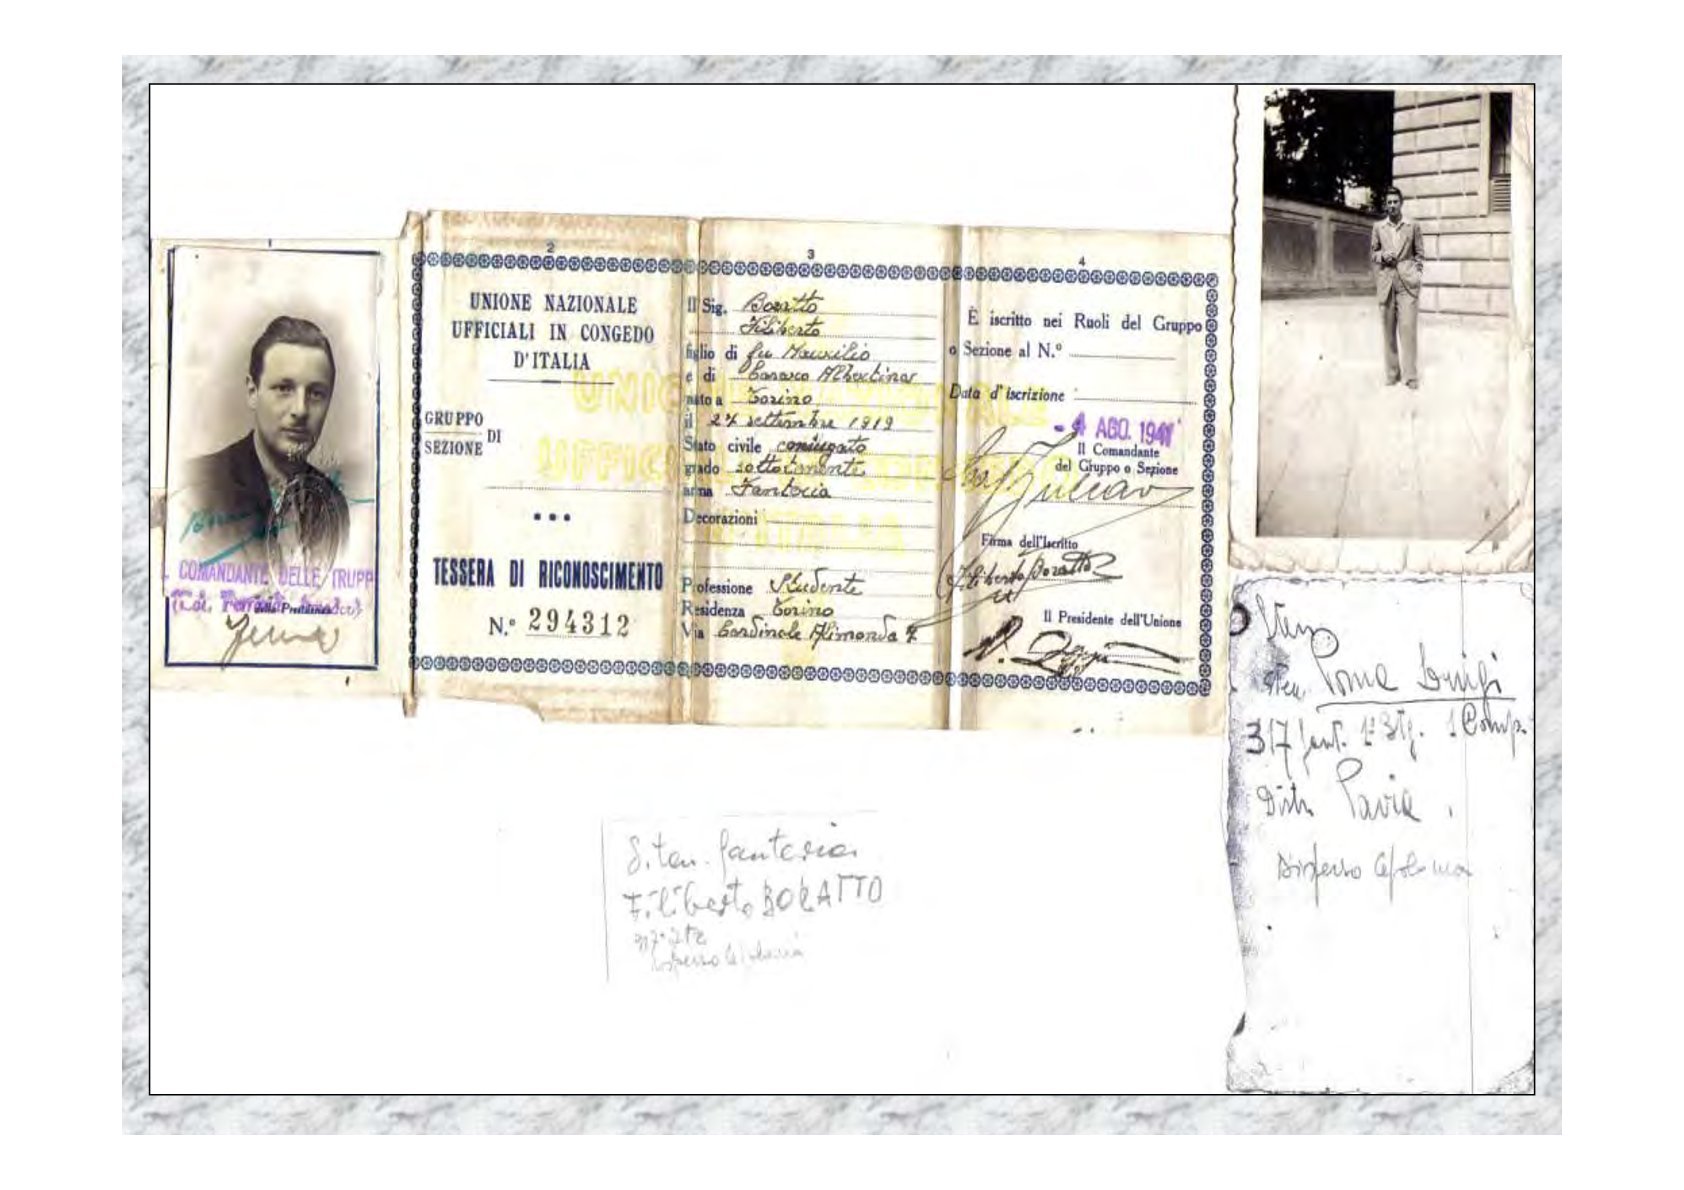 COMANDANTE DELLE TRUPP
2
UNIONE NAZIONALE
UFFICIALI IN CONGEDO
D'ITALIA
GRUPPO
SEZIONE
DI
TESSERA DI RICONOSCIMENTO
N.° 294312
3
Il Sig. Boratto
Filiberto
figlio di fu Maurilio
e di Albertina
nato a Torino
il 27 settembre 1919
Stato civile coniugato
grado sottotenente
arma Fanteria
Decorazioni
Professione Studente
Residenza Torino
Via Cardinale Alimonda 7
UNIONE NAZIONALE
UFFICIALI IN CONGEDO
D'ITALIA
4
È iscritto nei Ruoli del Gruppo
o Sezione al N.°
Data d'iscrizione
- 4 AGO. 1941
Il Comandante
del Gruppo o Sezione
Firma dell'Iscritto
Filiberto Boratto
Il Presidente dell'Unione
S. ten. fanteria
Filiberto BORATTO
317°
disperso Cefalonia
Sten.
Poma Luigi
317 fant. 1° Btg. 1 Comp.
Distr. Pavia.
Disperso Cefalonia